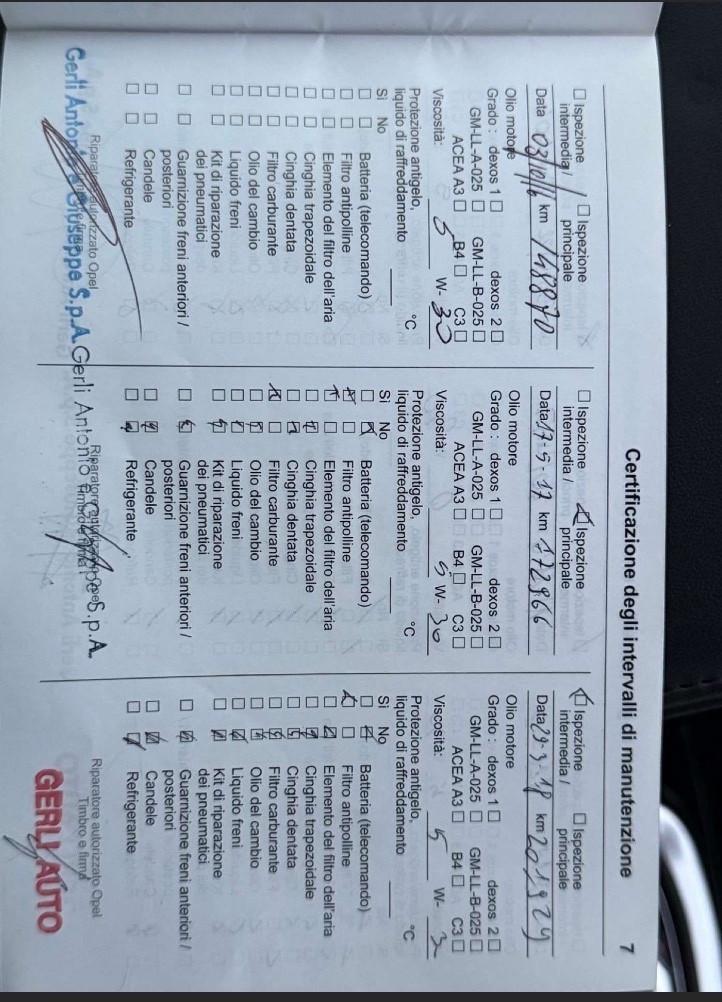 Certificazione degli intervalli di manutenzione 7
☐ Ispezione intermedia / ☐ Ispezione principale
Data 03/10/16 km 148870
Olio motore
Grado : dexos 1 ☐ dexos 2 ☐
GM-LL-A-025 ☐ GM-LL-B-025 ☐
ACEA A3 ☐ B4 ☐ C3 ☐
Viscosità: 5 W- 30
Protezione antigelo,
liquido di raffreddamento °C
Sì No
☐ ☐ Batteria (telecomando)
☐ ☐ Filtro antipolline
☐ ☐ Elemento del filtro dell'aria
☐ ☐ Cinghia trapezoidale
☐ ☐ Cinghia dentata
☐ ☐ Filtro carburante
☐ ☐ Olio del cambio
☐ ☐ Liquido freni
☐ ☐ Kit di riparazione
dei pneumatici
☐ ☐ Guarnizione freni anteriori /
posteriori
☐ ☐ Candele
☐ ☐ Refrigerante
Riparatore autorizzato Opel
Gerli Antonio e Giuseppe S.p.A.
☐ Ispezione intermedia / ☒ Ispezione principale
Data 17-5-17 km 172966
Olio motore
Grado : dexos 1 ☐ dexos 2 ☐
GM-LL-A-025 ☐ GM-LL-B-025 ☐
ACEA A3 ☐ B4 ☐ C3 ☐
Viscosità: 5 W- 30
Protezione antigelo,
liquido di raffreddamento °C
Sì No
☐ ☒ Batteria (telecomando)
☒ ☐ Filtro antipolline
☒ ☐ Elemento del filtro dell'aria
☐ ☒ Cinghia trapezoidale
☐ ☒ Cinghia dentata
☒ ☐ Filtro carburante
☐ ☒ Olio del cambio
☐ ☒ Liquido freni
☐ ☒ Kit di riparazione
dei pneumatici
☐ ☒ Guarnizione freni anteriori /
posteriori
☐ ☒ Candele
☐ ☒ Refrigerante
Riparatore autorizzato Opel
Timbro e firma
Gerli Antonio e Giuseppe S.p.A.
☒ Ispezione intermedia / ☐ Ispezione principale
Data 29-3-18 km 201929
Olio motore
Grado : dexos 1 ☐ dexos 2 ☐
GM-LL-A-025 ☐ GM-LL-B-025 ☐
ACEA A3 ☐ B4 ☐ C3 ☐
Viscosità: 5 W- 3
Protezione antigelo,
liquido di raffreddamento °C
Sì No
☐ ☒ Batteria (telecomando)
☒ ☐ Filtro antipolline
☐ ☒ Elemento del filtro dell'aria
☐ ☒ Cinghia trapezoidale
☐ ☒ Cinghia dentata
☐ ☒ Filtro carburante
☐ ☒ Olio del cambio
☐ ☒ Liquido freni
☐ ☒ Kit di riparazione
dei pneumatici
☐ ☒ Guarnizione freni anteriori /
posteriori
☐ ☒ Candele
☐ ☒ Refrigerante
Riparatore autorizzato Opel
Timbro e firma
GERLI AUTO